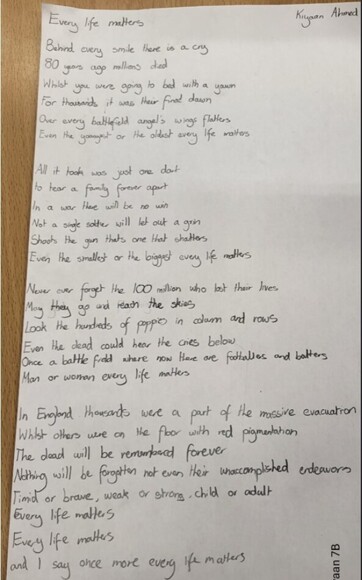 Every life matters
Kiyaan Ahmed
Behind every smile there is a cry
80 years ago millions died
Whilst you were going to bed with a yawn
For thousands it was their final dawn
Over every battlefield angel's wings flatters
Even the youngest or the oldest every life matters
All it took was just one dart
to tear a family forever apart
In a war there will be no win
Not a single soldier will let out a grin
Shoots the gun thats one that shatters
Even the smallest or the biggest every life matters
Never ever forget the 100 million who lost their lives
May they go and reach the skies
Look the hundreds of poppies in column and rows
Even the dead could hear the cries below
Once a battle field where now there are footballes and batters
Man or woman every life matters
In England thousands were a part of the massive evacuation
Whilst others were on the floor with red pigmentation
The dead will be remembered forever
Nothing will be forgotten not even their unaccomplished endeavors
Timid or brave, weak or strong, child or adult
Every life matters
Every life matters
and I say once more every life matters
aan 7B